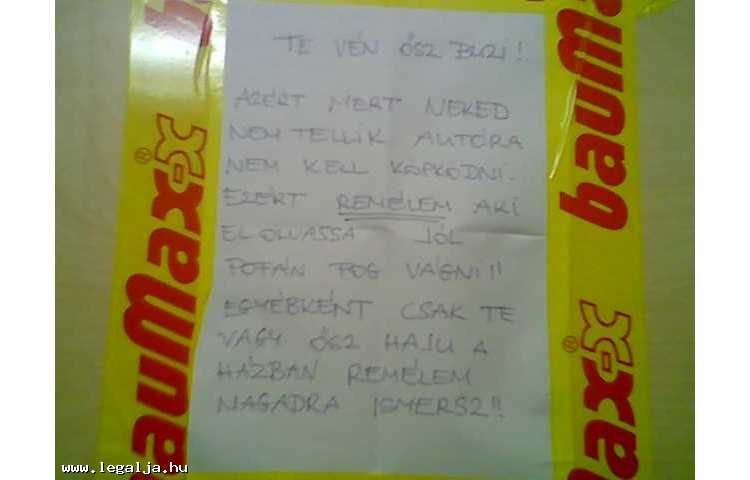 TE VÉN ŐSZ BUZI!
AZÉRT MERT NEKED
NEM TELLIK AUTÓRA
NEM KELL KÖPKÖDNI.
EZÉRT REMÉLEM AKI
ELOLVASSA JÓL
POFÁN FOG VÁGNI!!
EGYÉBKÉNT CSAK TE
VAGY ŐSZ HAJU A
HÁZBAN REMÉLEM
MAGADRA ISMERSZ!!
bauMax-x®
bauMa
max-x®
www.legalja.hu